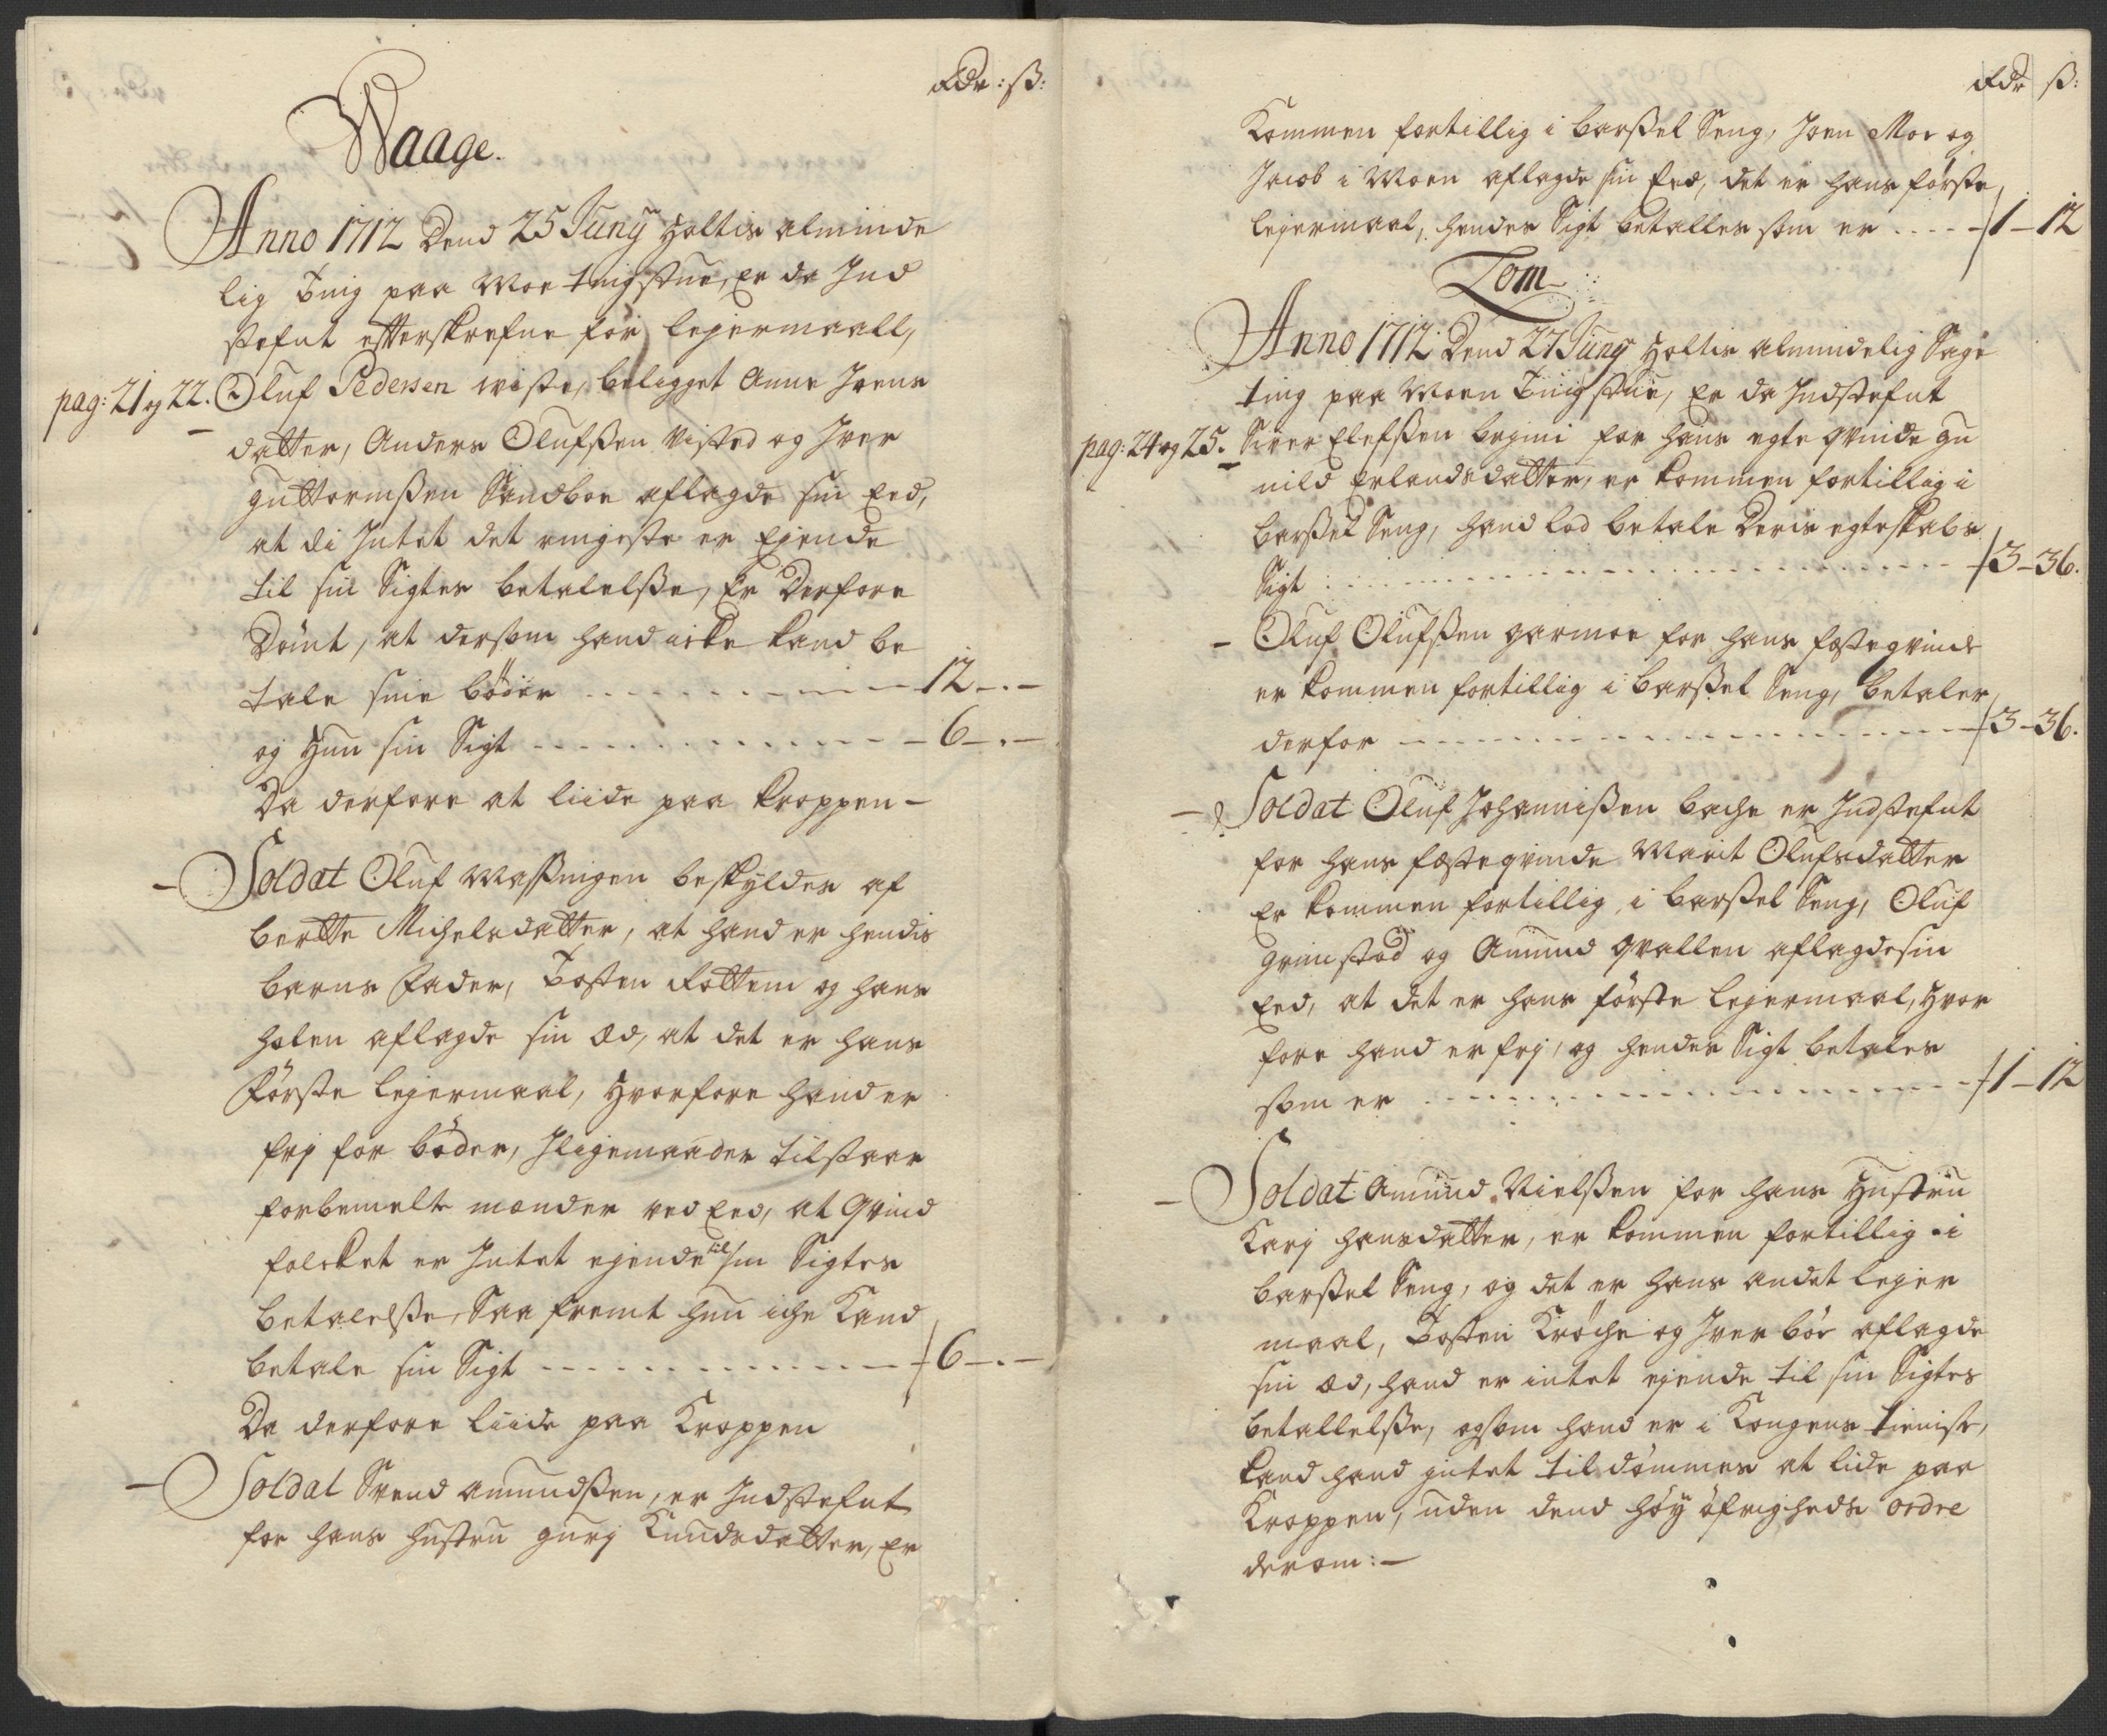 Rdr : ß:
Waage.
Anno 1712 Dend 25 Juny Holtis alminde
lig Ting paa Moe tingstue, Er da Ind
stefnt efterskrefne for lejermaall,
pag: 21 og 22. Oluf Pedersen viste, beligget Anne Joens
datter, Anders Olufßen Visted og Iver
Guttormßen Sandboe aflagde sin Eed,
at di Intet det ringeste er Ejende
til sin Sigtes betalelße, Er Derfore
Dömt, at dersom hand icke kand be
tale sine böder - - - 12 - . -
og Hun sin Sigt - - - 6 - . -
Da derfore at liide paa kroppen -
- Soldat Oluf Maßingen beskyldes af
bertte Michelsdatter, at hand er hendis
barns Fader, Tosten Rottem og hans
holen aflagde sin æd, at det er hans
Förste lejermaal, Hvorfore hand er
frj for böder, Iligemaader tilstaar
forbemelte mænder ved Eed, at Qvind
folcket er Intet ejende til sin Sigtes
betalelße, Saa fremt hun iche Kand
betale sin Sigt - - - 6 - . -
Da derfore liide paa Kroppen
- Soldat Svend Amundßen, er Indstefnt
for hans Hustru Gurj Knudsdatter, Er
Rdr ß:
Kommen fortillig i barßel Seng, Joen Moe og
Jacob i Moen aflagde sin Eed, det er hans förste
lejermaal, hendes Sigt betalles som er - - - 1 - 12
Lom
Anno 1712 Dend 27 Juny Holtis almindelig Sage
ting paa Moen Tingstue, Er da Indstefnt
pag: 24 og 25. Siver Elefßen for hans egte qvinde Gu
nild Erlandsdatter, er kommen fortillig i
barßel Seng, hand lod betale Deris egteskabs
Sigt - - - 3 - 36.
- Oluf Olufßen garmoe for hans festeqvinde
er kommen fortillig i barßel Seng, betaler
derfor - - - 3 - 36.
- Soldat Oluf Johannißen bache er Indstefnt
for hans festeqvinde Marit Olufsdatter
Er kommen fortillig i barßel Seng, Oluf
Grimstad og Amund qvallen aflagde sin
Eed, at det er hans förste lejermaal, Hvor
fore hand er frj, og hendes Sigt betales
som er - - - 1 - 12
- Soldat Amund Nielßen for hans Hustru
Karj Hansdatter, er kommen fortillig i
barßel Seng, og det er hans andet lejer
maal, Tosten Kröche og Iver böe aflagde
sin æd, hand er intet ejende til sin Sigtes
betallelße, og som hand er i Kongens tieniste,
kand hand intet tildömmes at lide paa
Kroppen, uden dend höy öfrigheds ordre
derom: -